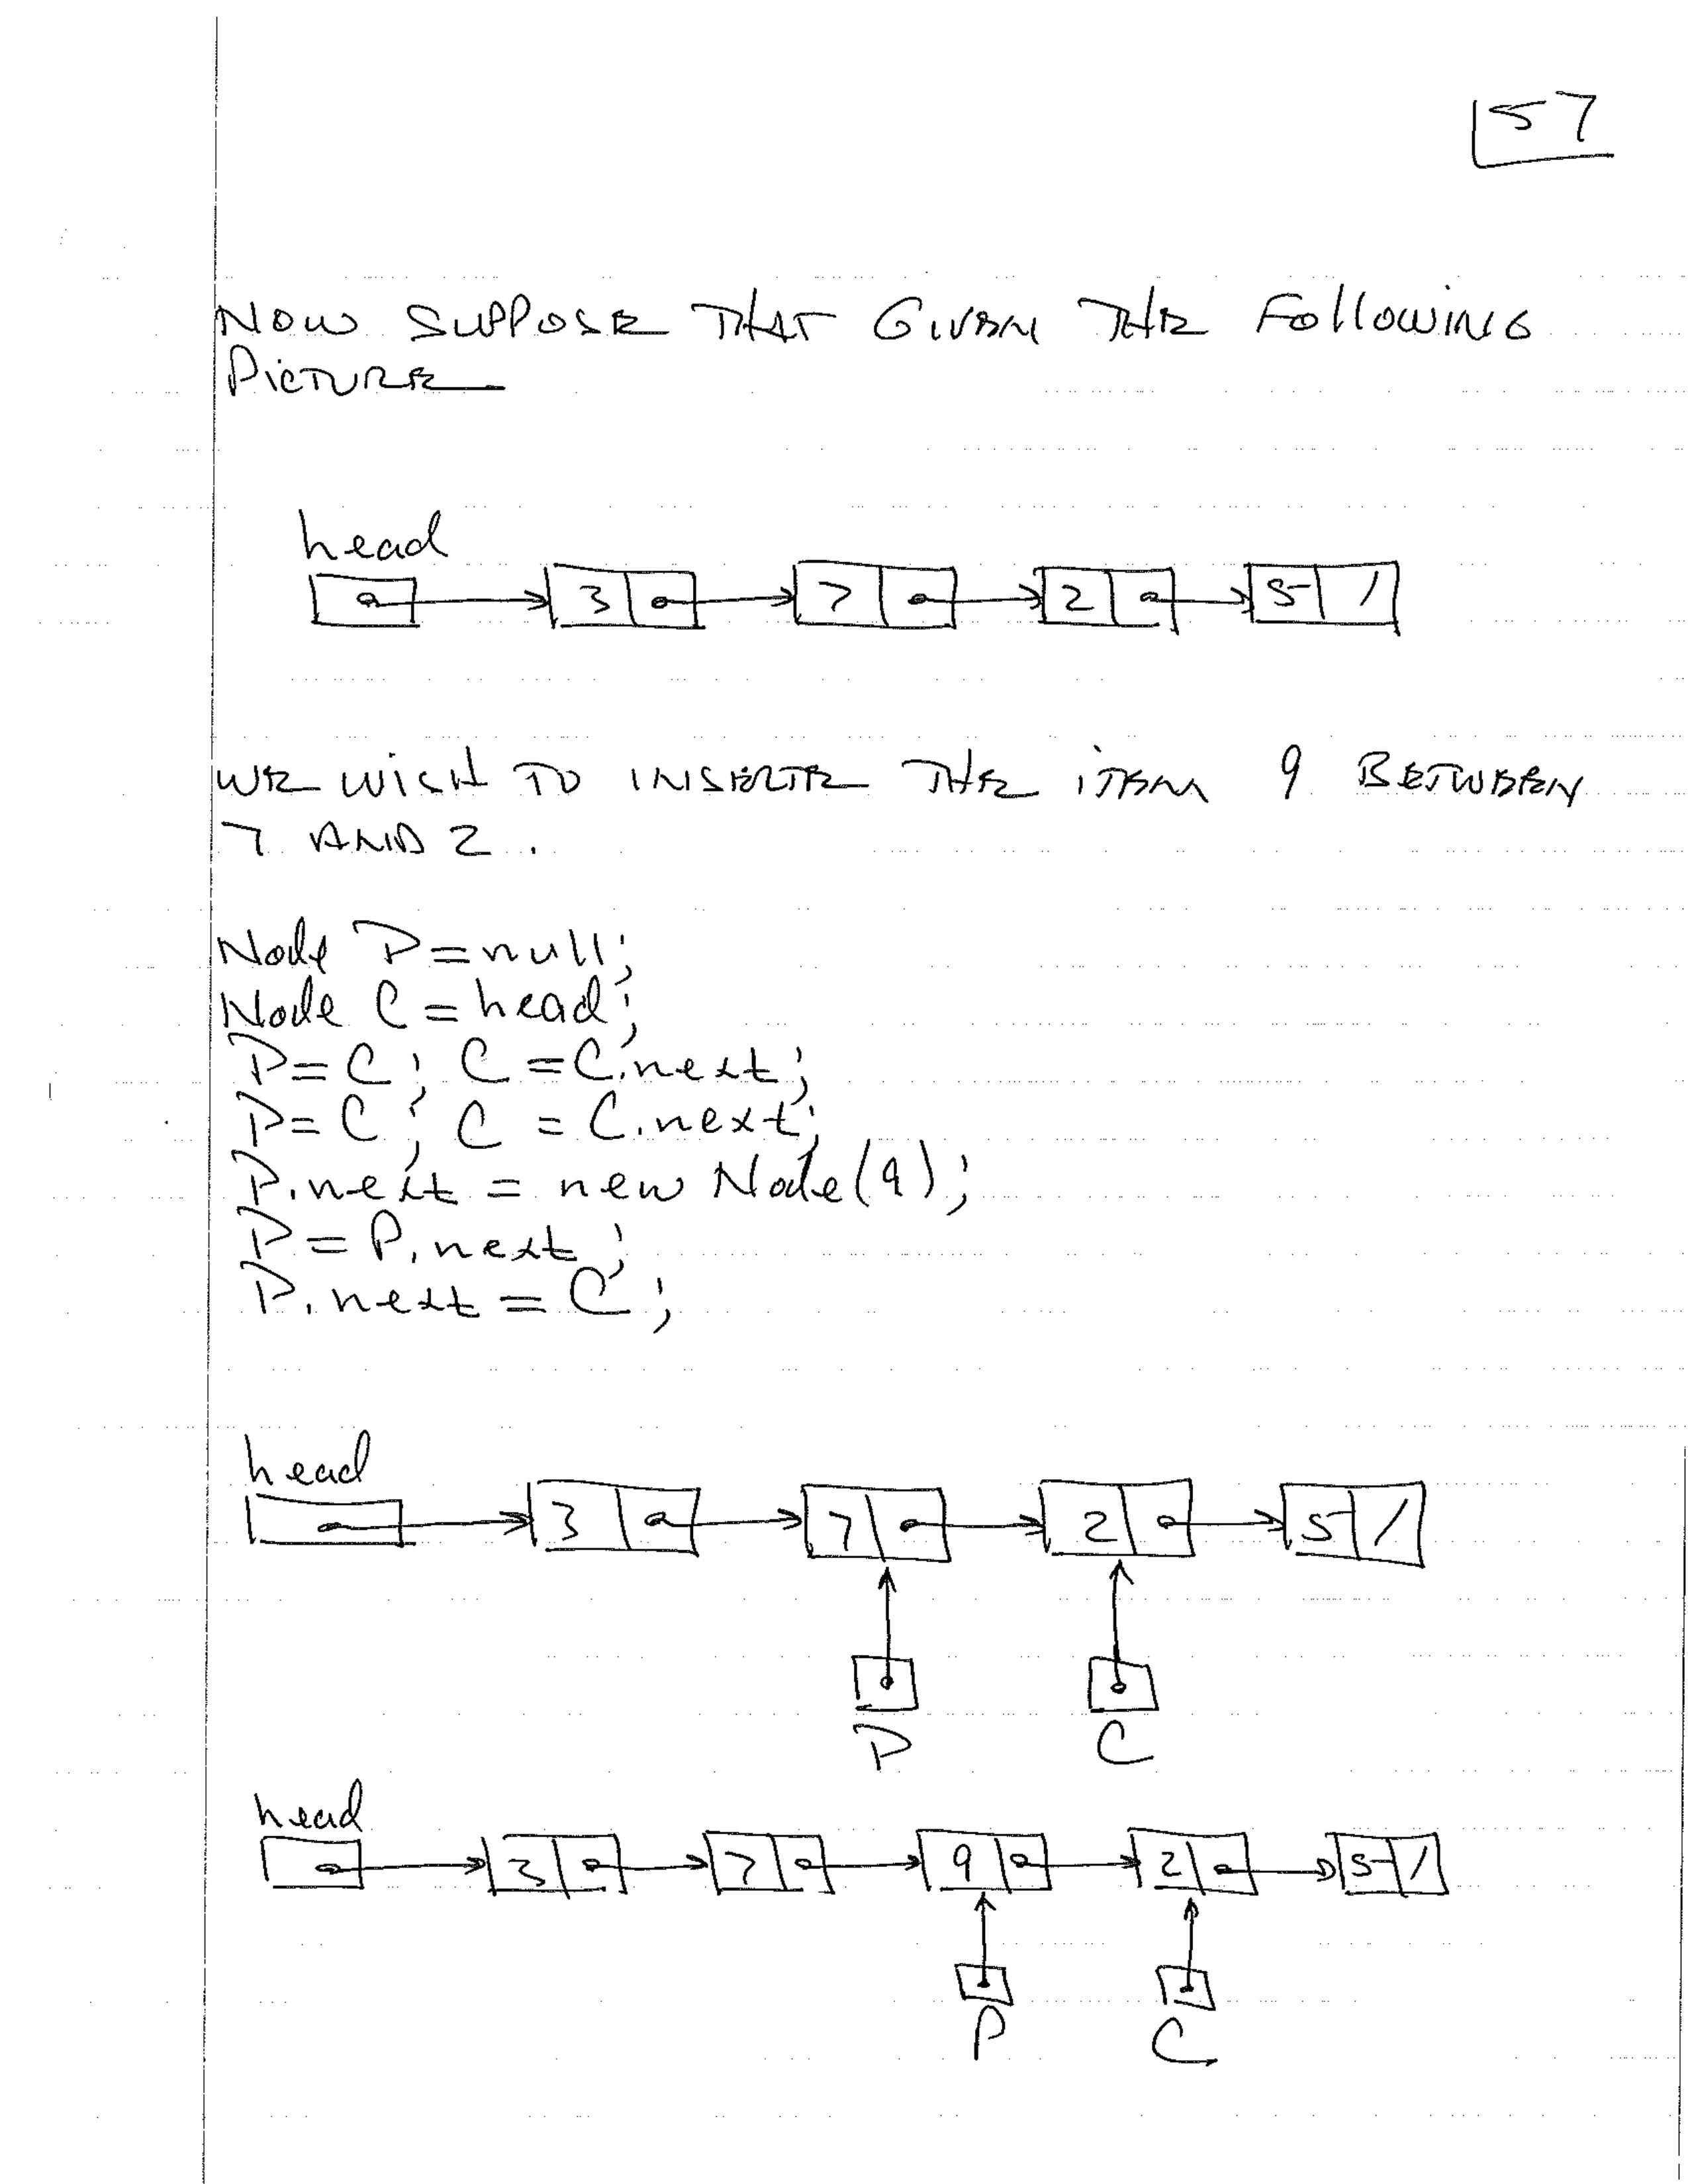 57
NOW SUPPOSE THAT GIVEN THE FOllOWING
PICTURE
head
3 7 2 5 /
WE WISH TO INSERTE THE ITEM 9 BETWEEN
7 AND 2.
Node P = null;
Node C = head;
P = C; C = C.next;
P = C; C = C.next;
P.next = new Node(9);
P = P.next;
P.next = C;
head
3 7 2 5 /
P C
head
3 7 9 2 5 /
P C